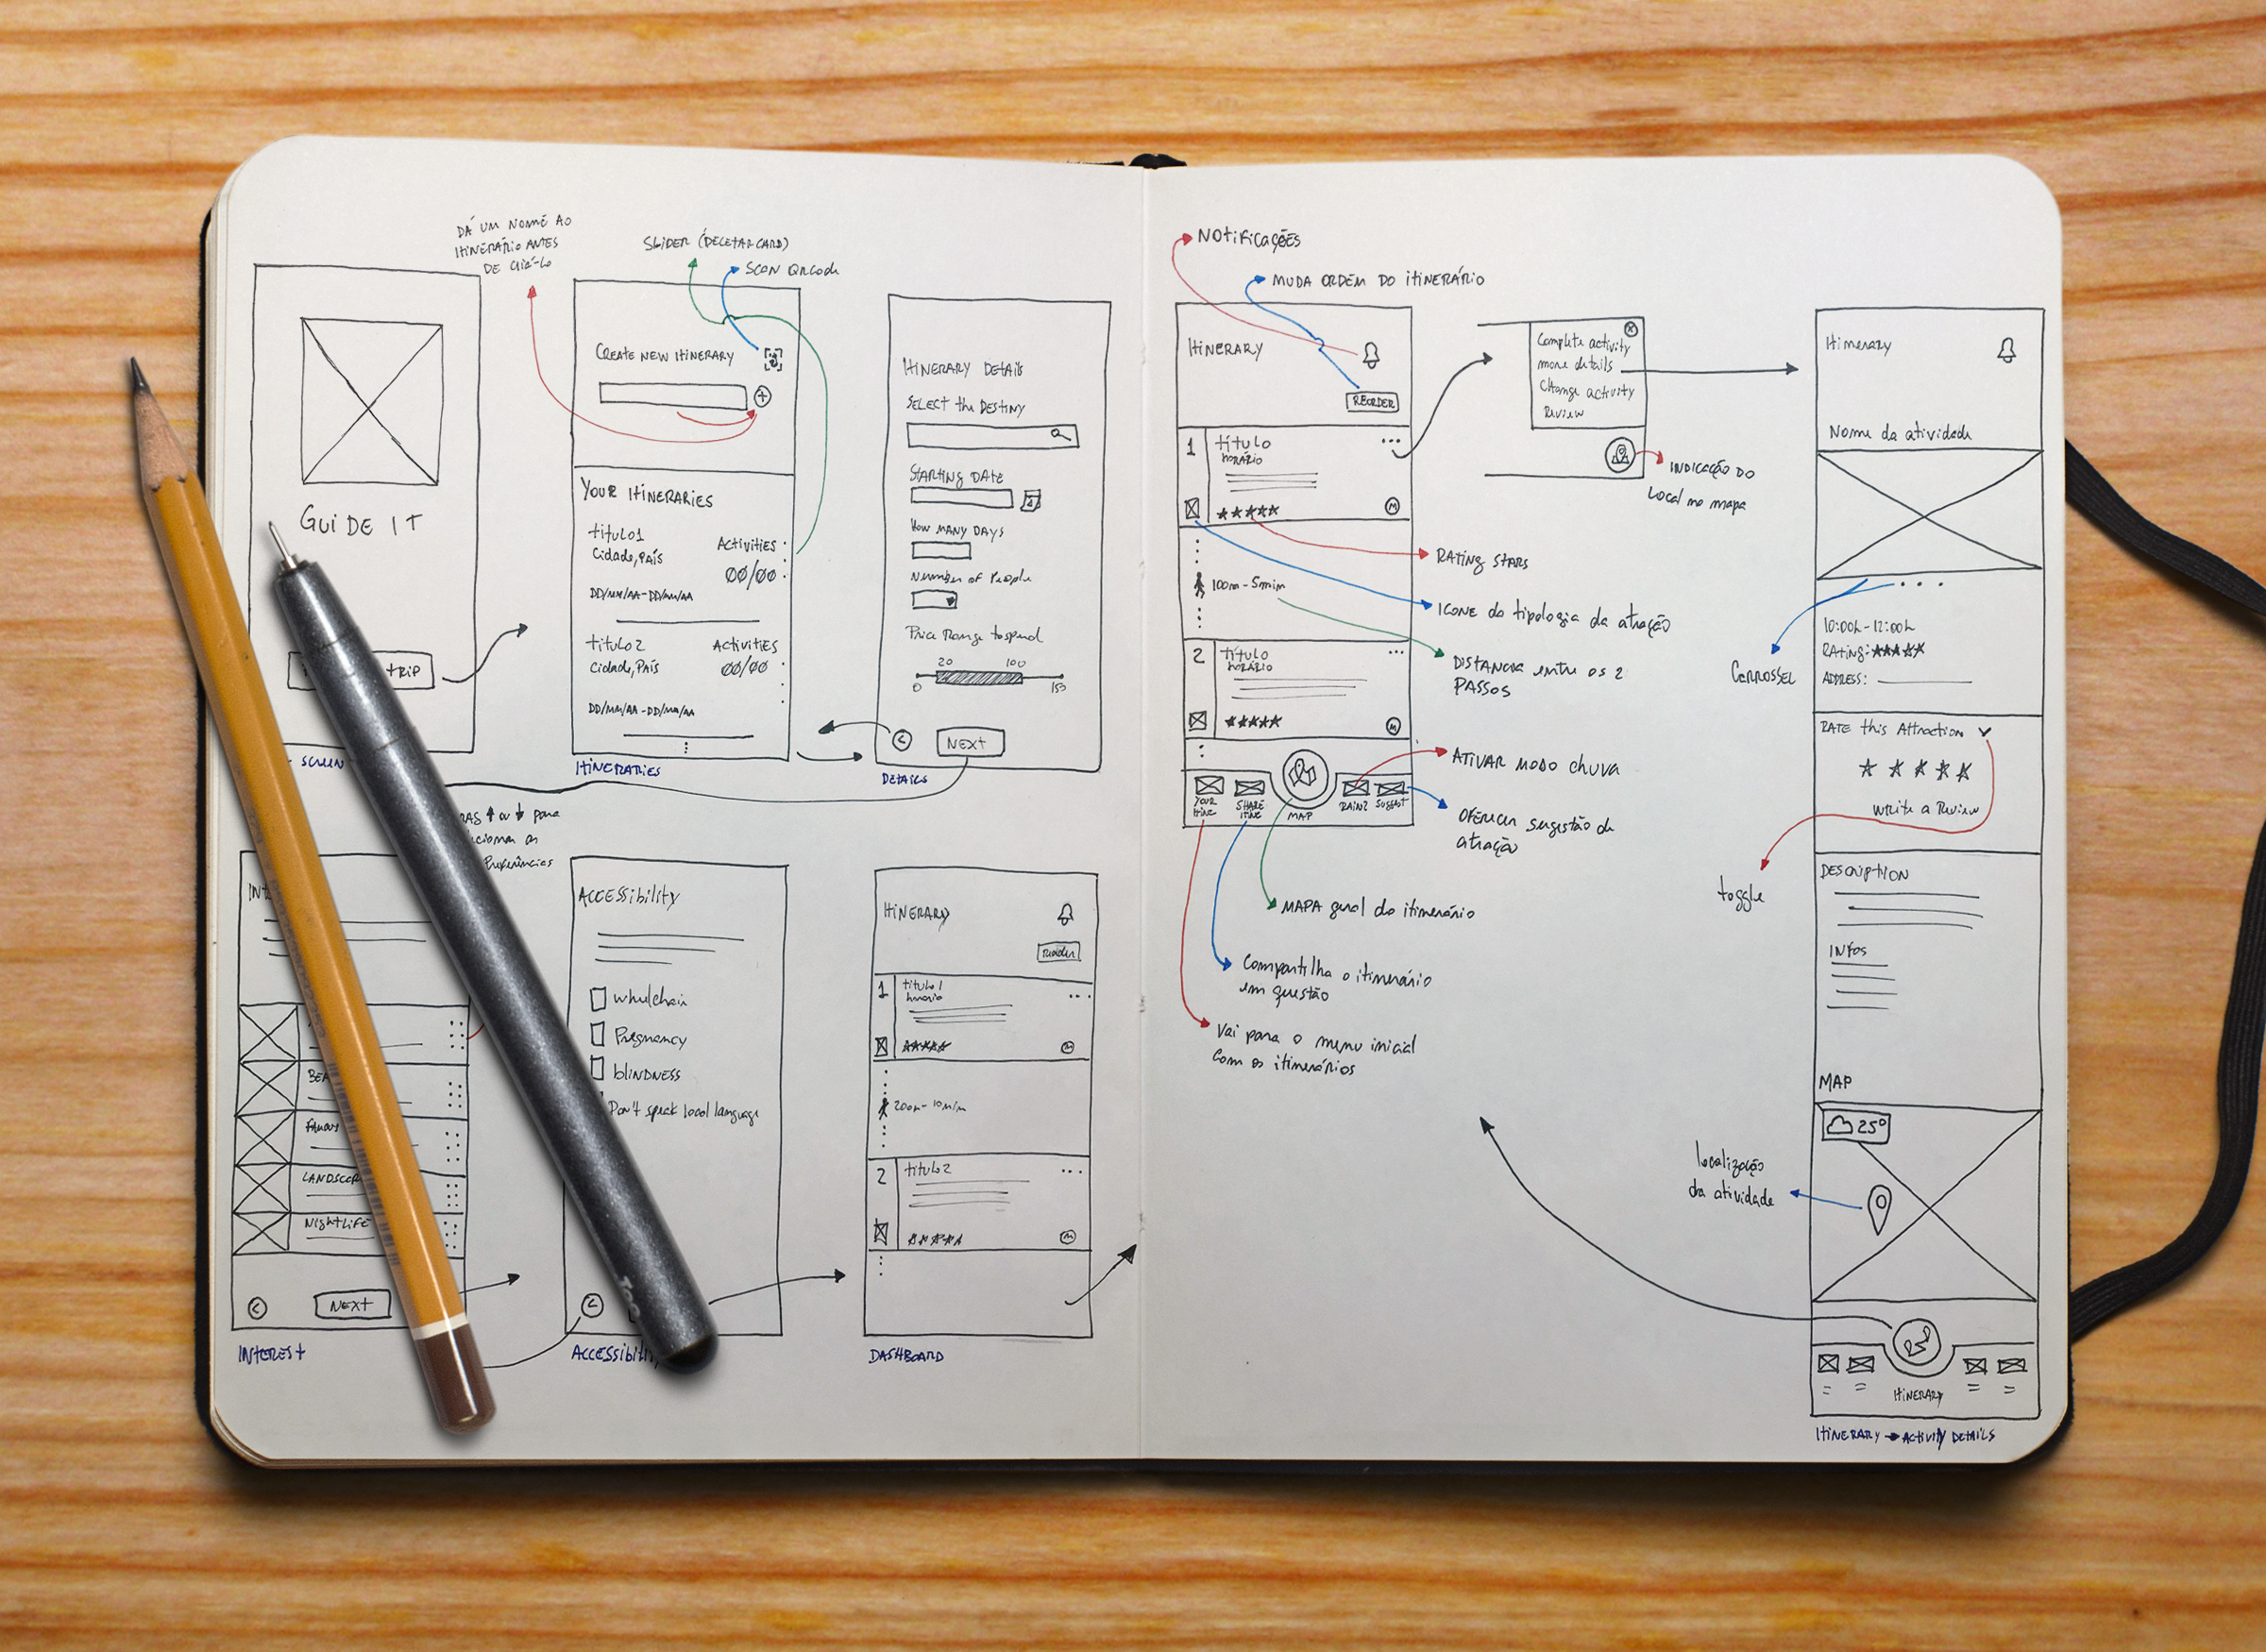 DÁ UM NOME AO
ITINERÁRIO ANTES
DE CRIÁ-LO
SLIDER (DELETAR CARD)
SCAN QRCode
GUIDE IT
TRIP
SCREEN
CREATE NEW ITINERARY
+
YOUR ITINERARIES
título1
Cidade, País
ACTIVITIES
00/00
DD/MM/AA-DD/MM/AA
título2
Cidade, País
ACTIVITIES
00/00
DD/MM/AA-DD/MM/AA
ITINERARIES
ITINERARY DETAILS
SELECT the DESTINY
STARTING DATE
HOW MANY DAYS
Number of People
Price Range to spend
20 100
0 150
<
NEXT
DETAILS
↑ ou ↓ para
as
Preferências
FAMOUS
NIGHTLIFE
<
NEXT
INTEREST
ACCESSIBILITY
wheelchair
Pregnancy
blINDNESS
Don't speak local language
<
ITINERARY
Reorder
1
título1
horário
★★★★★
M
200m-10min
2
título2
★★★★★
M
DASHBOARD
NOTIFICAÇÕES
MUDA ORDEM DO ITINERÁRIO
ITINERARY
REORDER
1
título
HORÁRIO
★★★★★
M
100m-5min
2
título
HORÁRIO
★★★★★
M
YOUR
ITINE
SHARE
ITINE
MAP
RAIN?
SUGGEST
Complete activity
more details
Change activity
Review
X
INDICAÇÃO DO
Local no mapa
RATING STARS
ICONE da tipologia da atração
DISTANCIA entre os 2
PASSOS
ATIVAR MODO CHUVA
OFERECER sugestão de
atração
MAPA geral do itinerário
Compartilha o itinerário
em questão
Vai para o menu inicial
com os itinerários
Itinerary
Nome da atividade
CARROSSEL
10:00h-12:00h
RATING: ★★★★★
ADDRESS:
RATE this Attraction
★★★★★
Write a Review
toggle
DESCRIPTION
INFOS
MAP
25º
localização
da atividade
ITINERARY
ITINERARY → ACTIVITY DETAILS